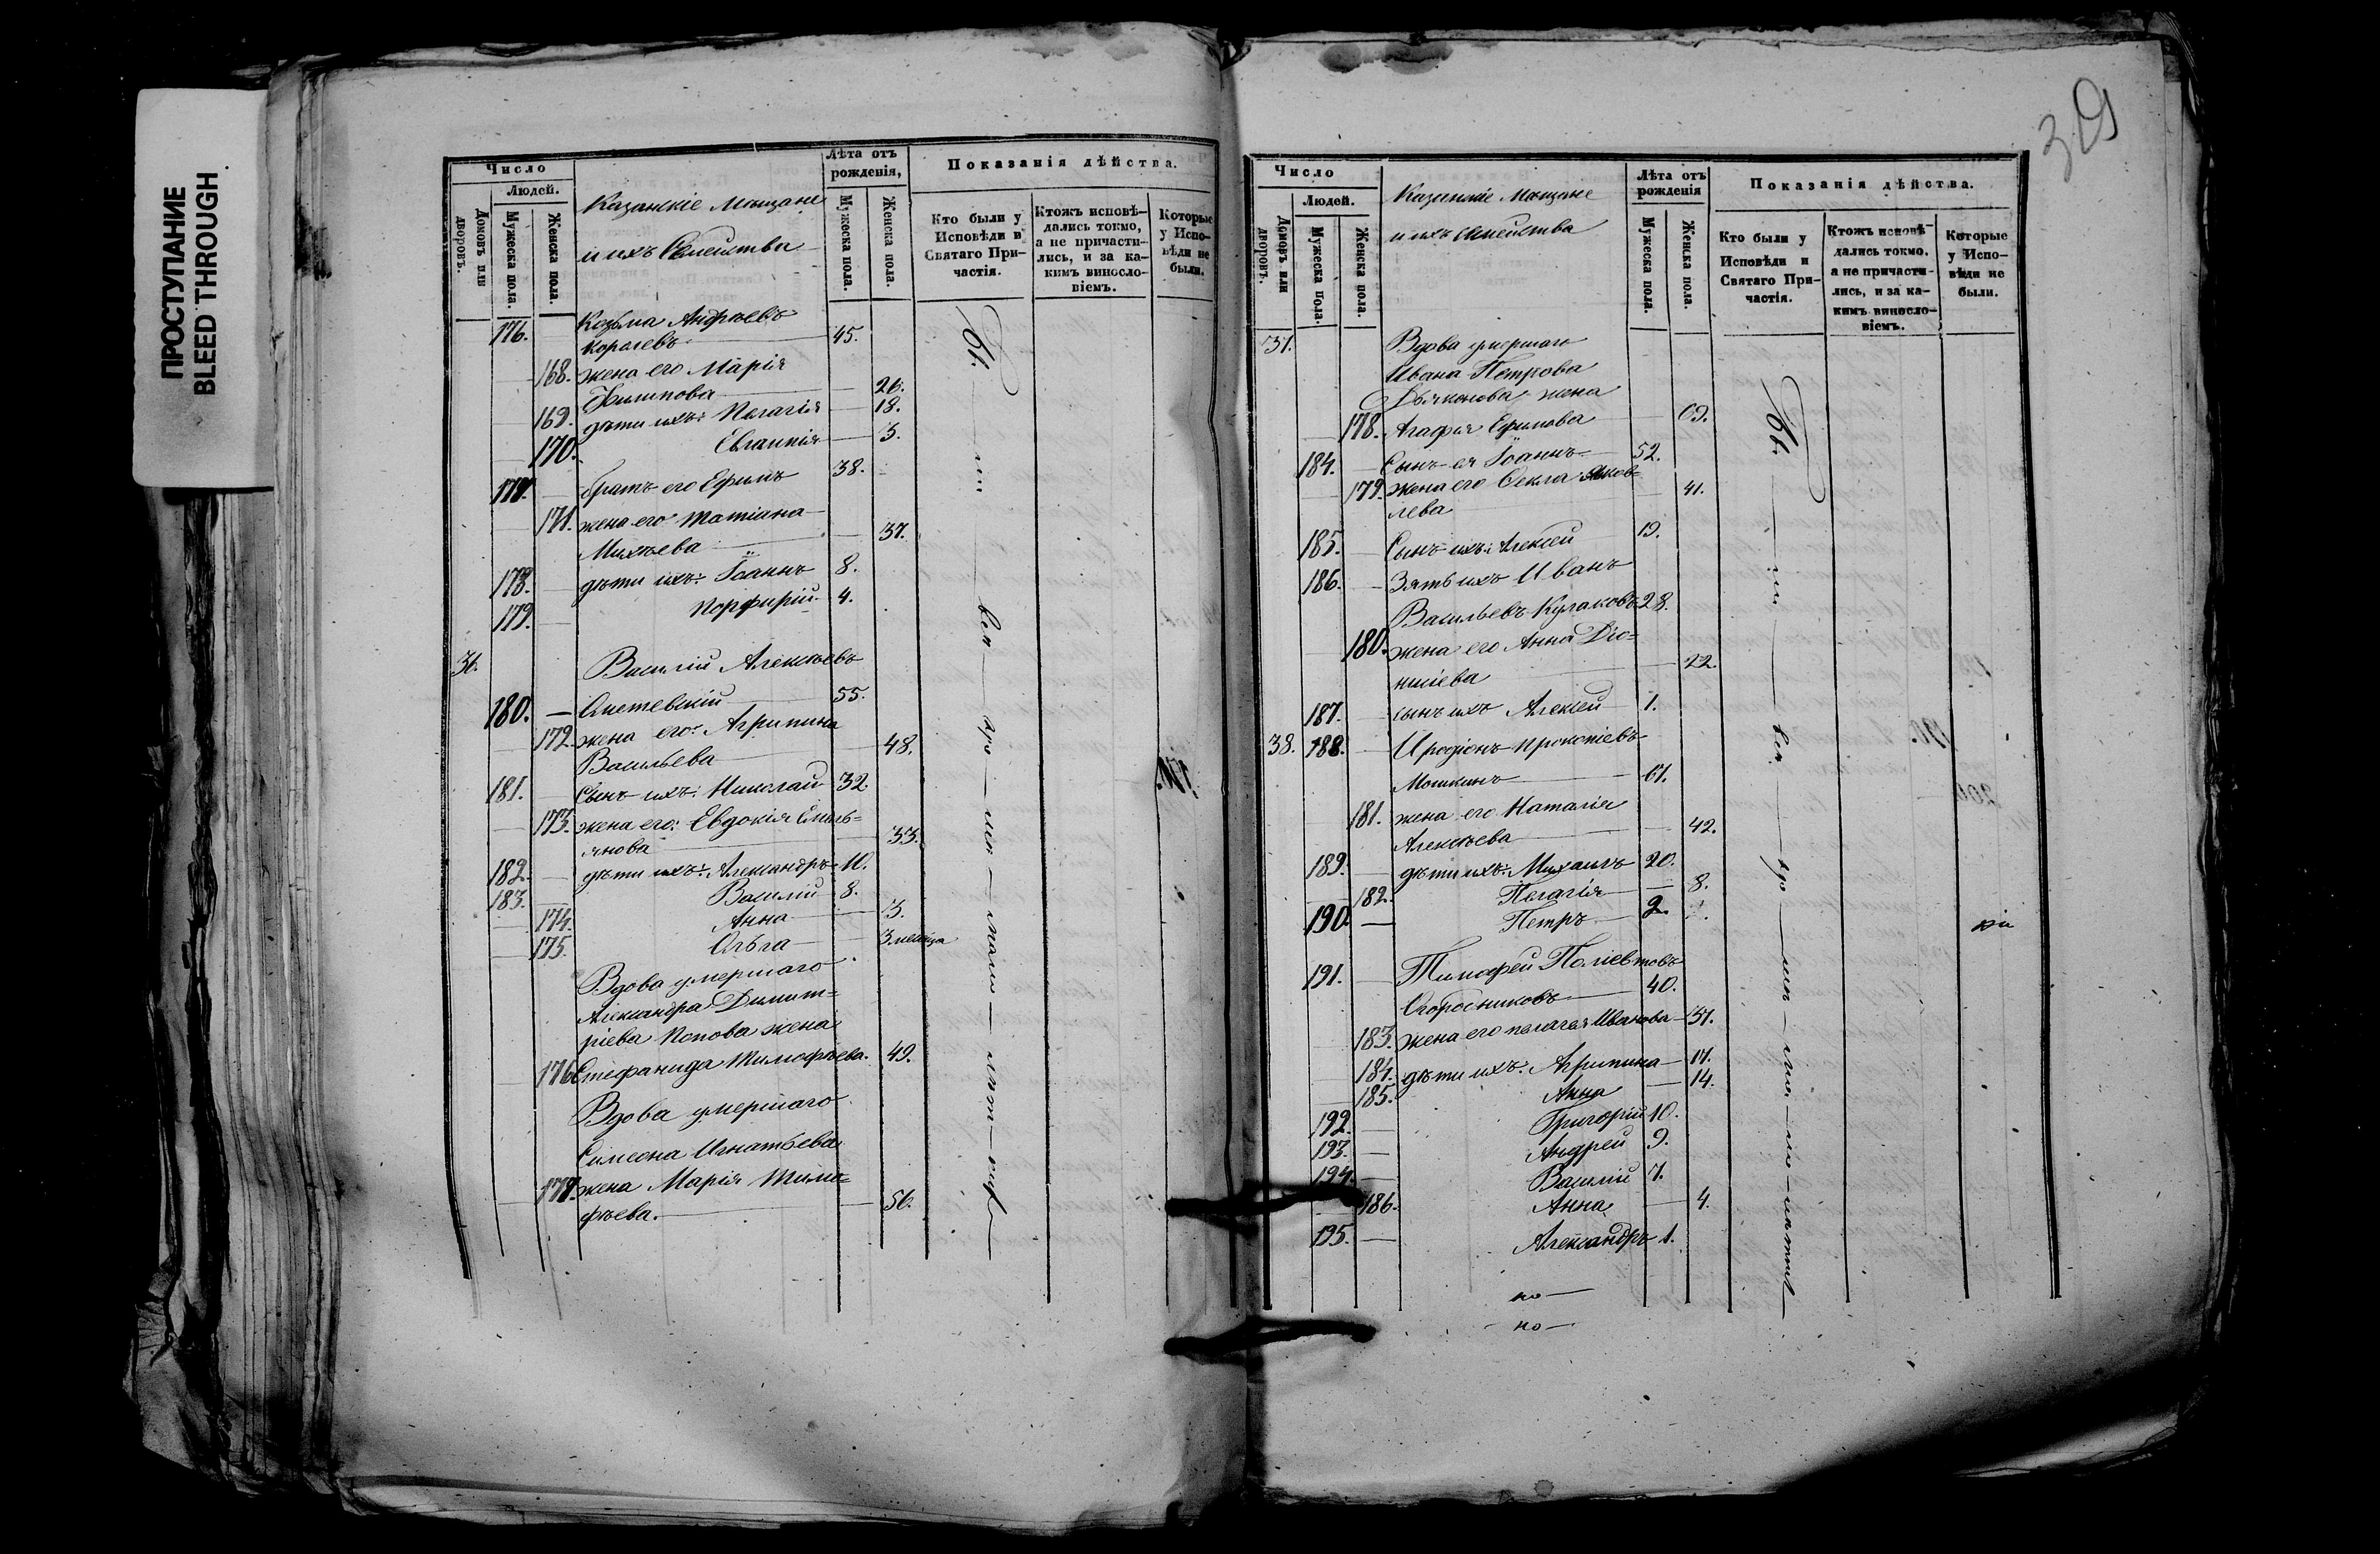 ПРОСТУПАНИЕ
BLEED THROUGH
Число
Людей.
Домовъ или дворовъ.
Мужеска пола.
Женска пола.
Казанскіе Мѣщане
и ихъ Семейства
Лѣта отъ рожденія,
Мужеска пола.
Женска пола.
Показанія дѣйства.
Кто были у Исповѣди и Святаго Причастія.
Ктожъ исповѣдались токмо, а не причастились, и за какимъ винословіемъ.
Которые у Исповѣди не были.
176. Козьма Андреевъ
Королевъ 45.
168. жена его Марія
Филипова 26.
169. дѣти ихъ: Пелагія 18.
170. Евлампія 3.
братъ его Ефимъ 38.
171. жена его Татіана
Михѣева 37.
178. дѣти ихъ: Іоаннъ 8.
179. Порфирій 4.
36. Василій Алексѣевъ
180. 55.
172. жена его: Агрипина
Васильева 48.
181. Сынъ ихъ: Николай 32.
173. жена его: Евдокія Емель=
янова 33.
182. дѣти ихъ: Александръ 10.
183. Василій 8.
174. Анна 3.
175. Ольга 3 месяца
Вдова умершаго
Александра Димит=
ріева Попова жена
176 Стефанида Тимофѣева. 49.
Вдова умершаго
Симеона Игнатьева
177. жена Марія Тимо=
фѣева. 56.
39
Число
Людей.
Домовъ или дворовъ.
Мужеска пола.
Женска пола.
Казанскіе Мѣщане
и ихъ Семейства
Лѣта отъ рожденія
Мужеска пола.
Женска пола.
Показанія дѣйства.
Кто были у Исповѣди и Святаго Причастія.
Ктожъ исповѣдались токмо, а не причастились, и за какимъ винословіемъ.
Которые у Исповѣди не были.
37. Вдова умершаго
Ивана Петрова
Дьяконова жена
178. Агафья Ефимова 69.
184. Сынъ ея Іоаннъ 52.
179. жена его Текла Яков=
лева 41.
185. Сынъ ихъ: Алексей 19.
186. Зять ихъ Иванъ
Васильевъ Кулаковъ 28.
180. жена его Анна Діо=
нисіева 22.
187. сынъ ихъ Алексей 1.
38. 188. Иродіонъ Прокопіевъ
Мошкинъ 61.
181. жена его Наталія
Алексѣева 42.
189. дѣти ихъ: Михаилъ 20.
182. Пелагія 8.
190. Петръ 2.
191. Тимофей Поліевтовъ
Огородниковъ 40.
183. жена его Пелагея Иванова 37.
184. дѣти ихъ: Агрипина 17.
185. Анна 14.
192. Григорій 10.
193. Андрей 9.
194. Василій 7.
186. Анна 4.
195. Александръ 1.